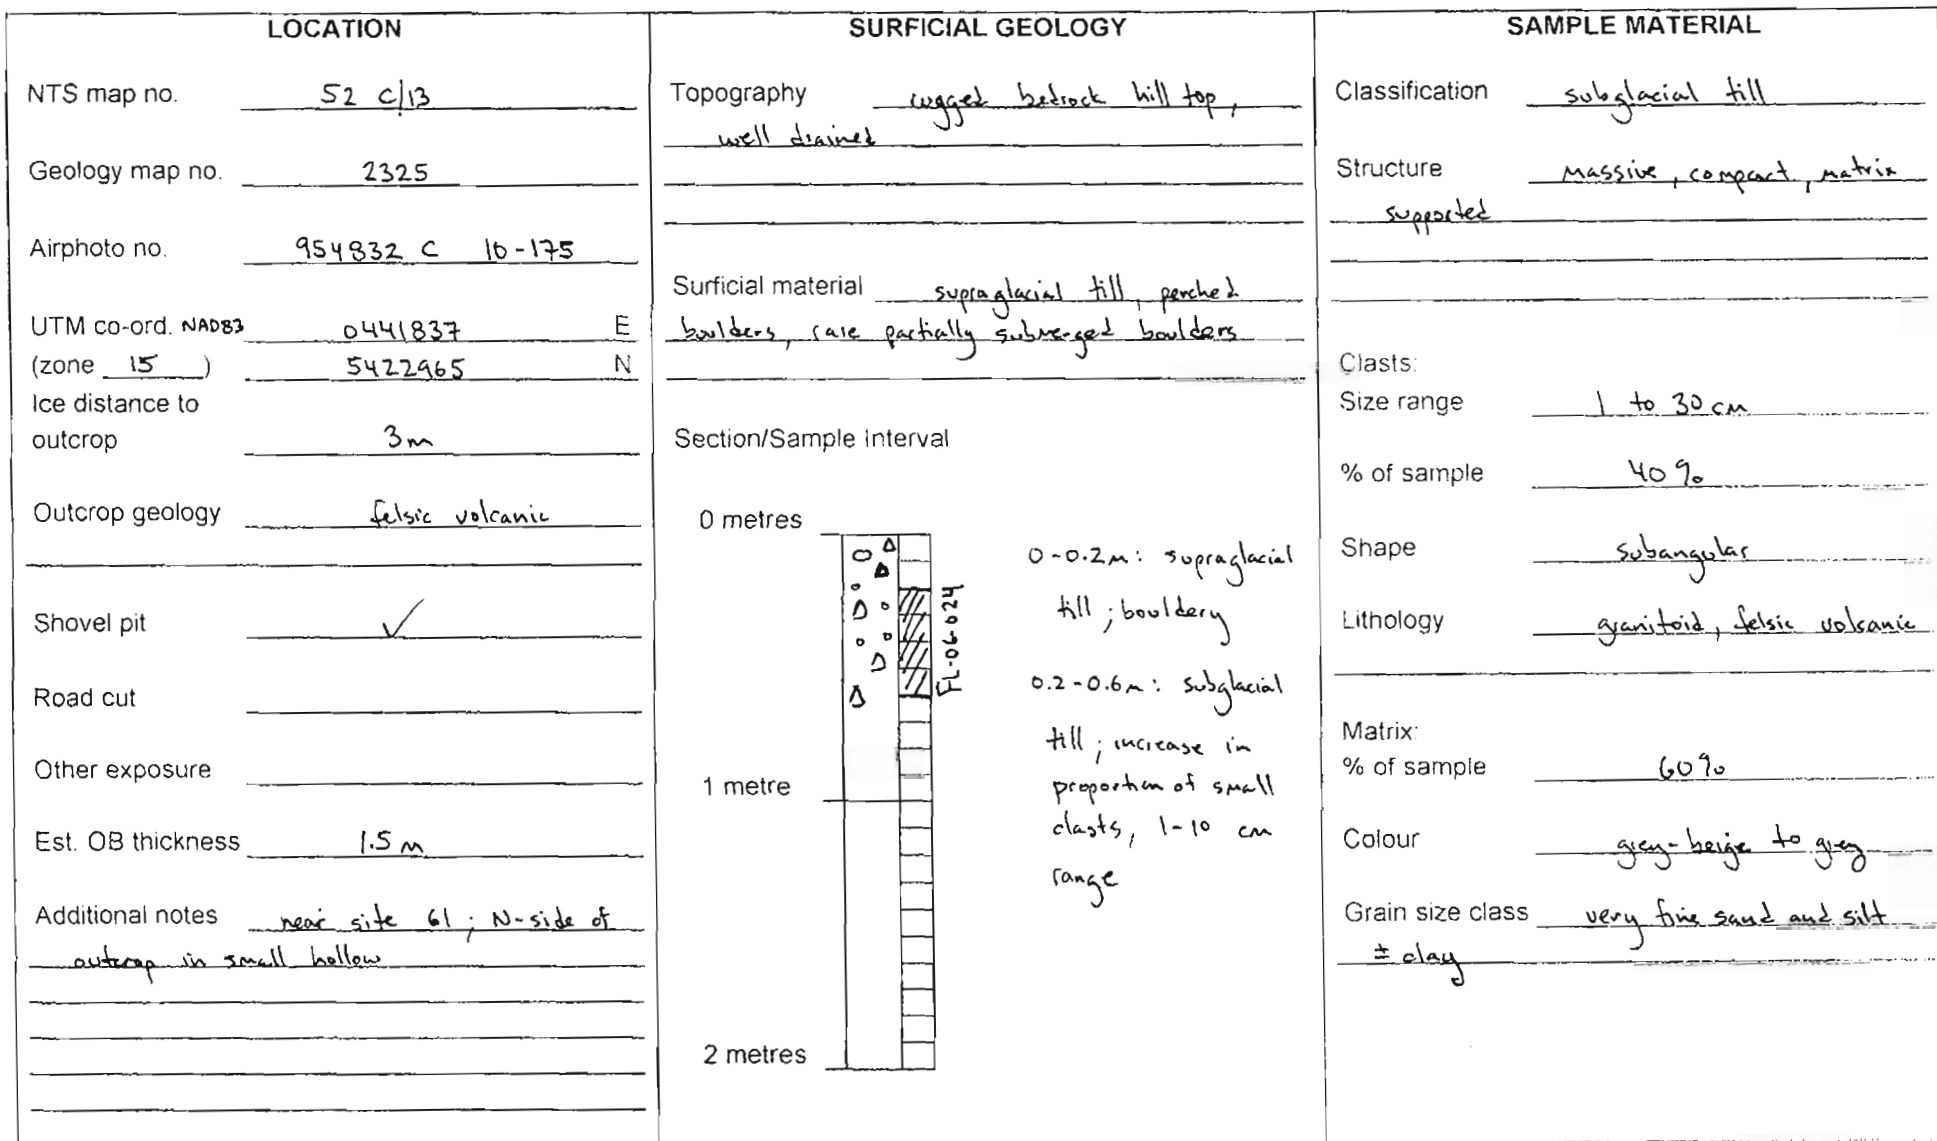 LOCATION
NTS map no. 52 C/13
Geology map no. 2325
Airphoto no. 954832 C 10-175
UTM co-ord. NAD83 0441837 E
(zone 15 ) 5422965 N
Ice distance to
outcrop 3m
Outcrop geology felsic volcanic
Shovel pit ✓
Road cut
Other exposure
Est. OB thickness 1.5 m
Additional notes near site 61 ; N-side of
outcrop in small hollow
SURFICIAL GEOLOGY
Topography rugged bedrock hill top,
well drained
Surficial material supraglacial till, perched
boulders, rare partially submerged boulders
Section/Sample Interval
0 metres
1 metre
2 metres
FL-06-024
0-0.2m: supraglacial
till ; bouldery
0.2-0.6m: subglacial
till ; increase in
proportion of small
clasts, 1-10 cm
range
SAMPLE MATERIAL
Classification subglacial till
Structure massive, compact, matrix
supported
Clasts:
Size range 1 to 30 cm
% of sample 40%
Shape subangular
Lithology granitoid, felsic volcanic
Matrix:
% of sample 60%
Colour grey-beige to grey
Grain size class very fine sand and silt
± clay